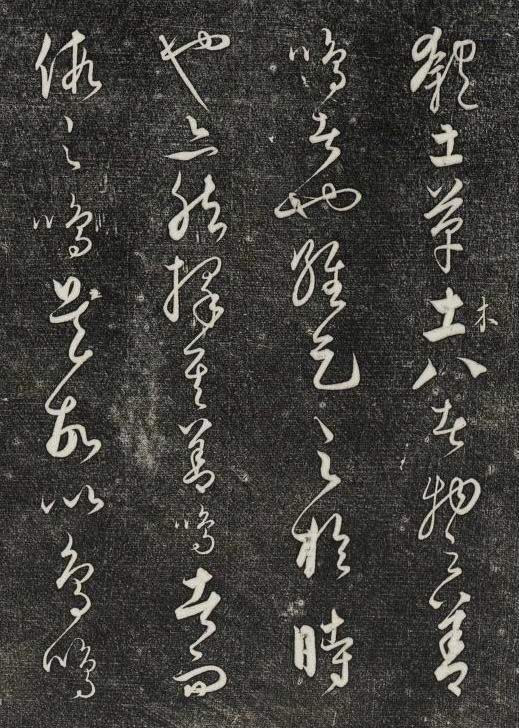 匏土革土木八者物之善
鳴者也維天之於時
也亦然擇其善鳴者而
假之鳴是故以鳥鳴